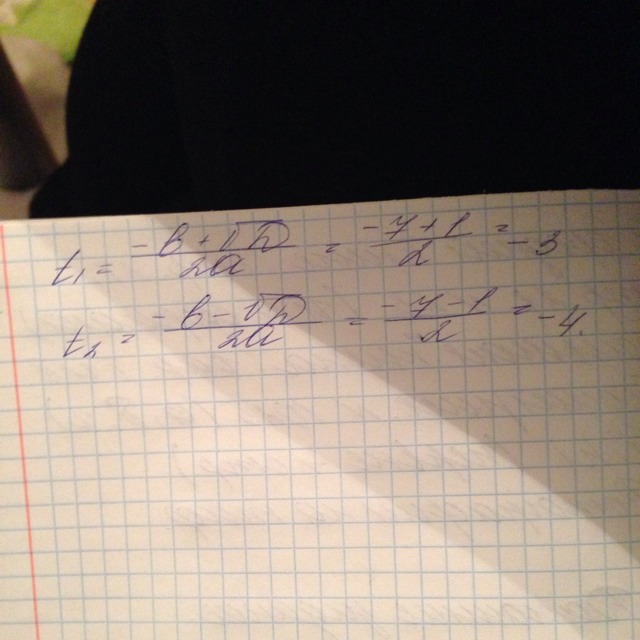 t₁ = (-b + √D) / 2a = (-7 + 1) / 2 = -3
t₂ = (-b - √D) / 2a = (-7 - 1) / 2 = -4.